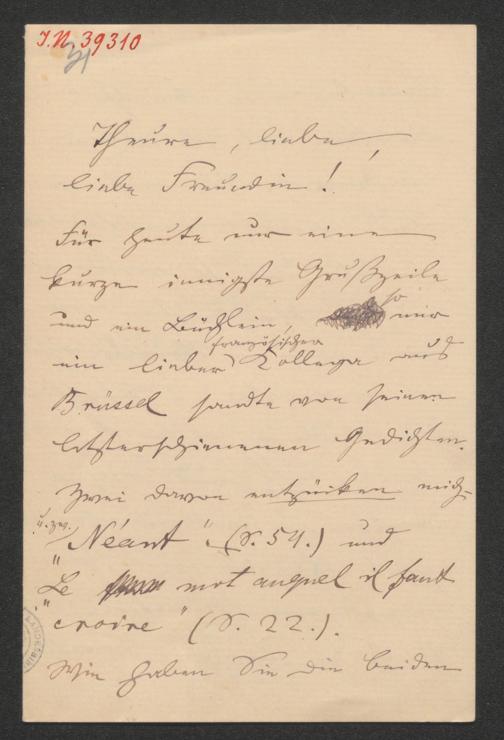 I.N. 39310
Theure, liebe,
liebe Freundin!
Für heute nur eine
kurze innigste Grußzeile
und ein Büchlein, so mir
ein lieber französischer Kollega aus
Brüssel sandte von seinen
letzterschienenen Gedichten.
Zwei davon entzücken mich
u. zw.
"Néant" (S. 54.) und
"Le mot auquel il faut
croire" (S. 22.).
Wie haben Sie die beiden